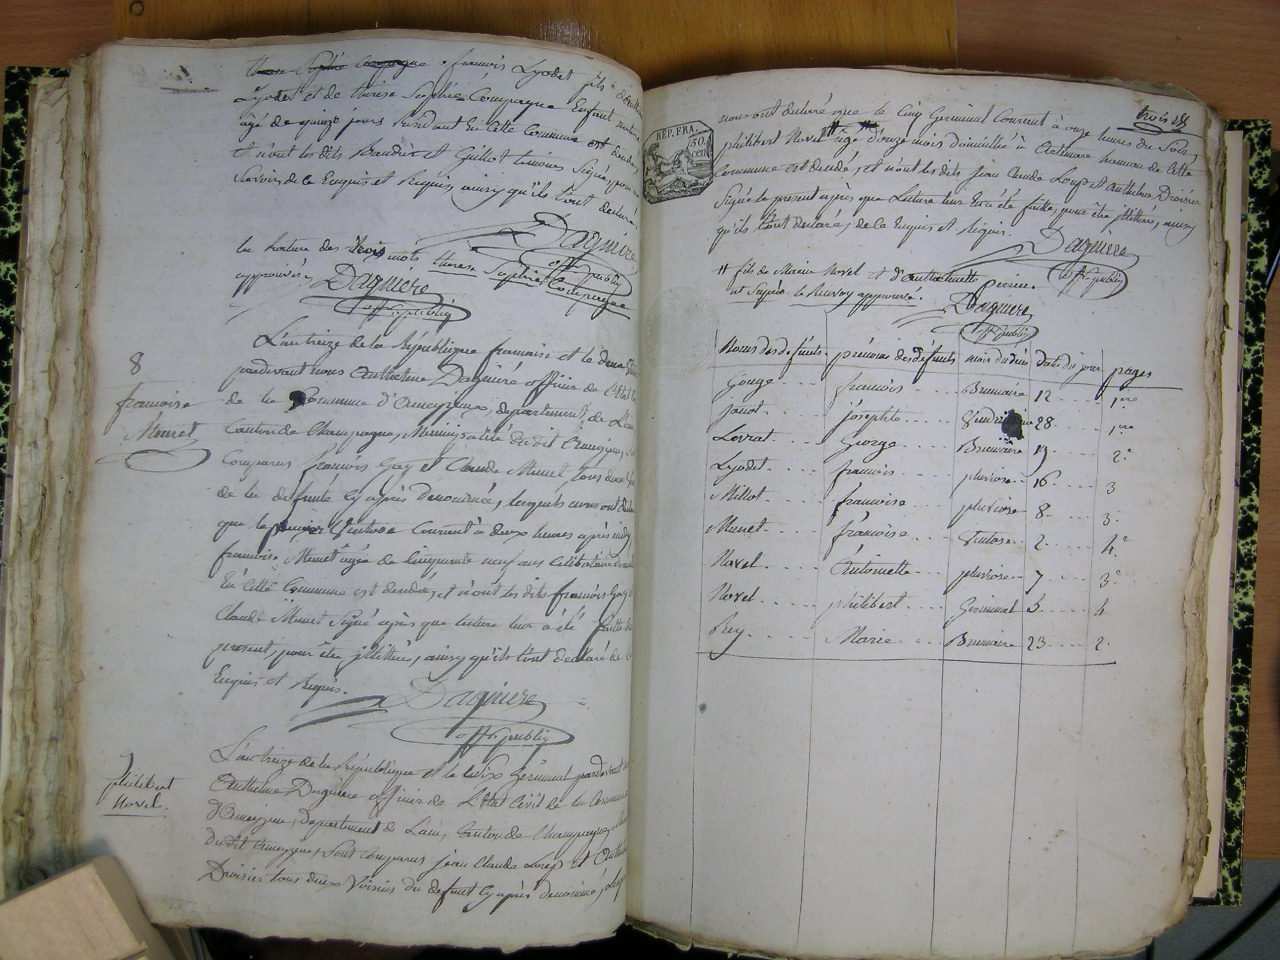 françois Lyodet fils
Lyodet et de thérèse Sophie Compagne Enfant
agé de quinze jours Residant En cette Commune est
et n'ont les dits Baudier et Guillot temoins Signé pour
Savoir de ce Enquis et Requis ainsy qu'ils l'ont declaré.
Dagniere
off. public
la rature des trois mots therese Sophie Compagne
approuvée Dagniere
off. public
8
françoise
Munet
L'an treize de la République française et le deux
pardevant nous Anthelme Dagniere officier de l'Etat
de la Commune d'Ameyzieux, departement de L'ain
Canton de Champagne, Municipalité du dit Ameyzieu,
Comparus françois Gay et Claude Munet tous deux
de la defunte cy après denommée, lesquels nous ont
que le premier Ventose Courant à deux heures après midy
françoise Munet agée de Cinquante neuf ans Célibataire
En cette Commune est decedée, et n'ont les dits françois Gay
Claude Munet Signé après que lecture leur a été faitte du
present, pour être illitérés, ainsy qu'ils l'ont declaré de ce
Enquis et Requis.
Dagniere
off. public
9
philibert
Novel
L'an treize de la République et le Six Germinal pardevant
Anthelme Dagniere officier de L'Etat Civil de la Commune
d'Ameyzieu, departement de Lain, Canton de Champagne,
du dit Ameyzieu, Sont Comparus jean Claude Loup et
Droisier tous deux Voisins du defunt cy après denommé,
REP. FRA.
50.
CEN
trois
nous ont declaré que le Cinq Germinal Courant à onze heures du Soir
philibert Novel # agé d'onze mois domicillié à hameau de cette
Commune est decedé, et n'ont les dits jean Claude Loup et Anthelme Droisier
Signé le present après que Lecture leur En a été faitte, pour être illitérés, ainsy
qu'ils l'ont declaré, de ce Enquis et Requis.
Dagniere
off. public
# fils de Novel et d'antoinette
le Renvoy approuvé.
Dagniere
off. public
Noms des defunts prénoms des défunts mois du décès Date des jours pages
Gouge françois Brumaire 12 1ere
Janot josephte Vendemiaire 28 1ere
Lovrat George Brumaire 19 2e
Lyodet françois pluviose 16 3
Millot françoise pluviose 8 3
Munet françoise Ventose 2 4e
Novel Antoinette pluviose 7 3e
Novel philibert Germinal 5 4
Rey Marie Brumaire 23 2